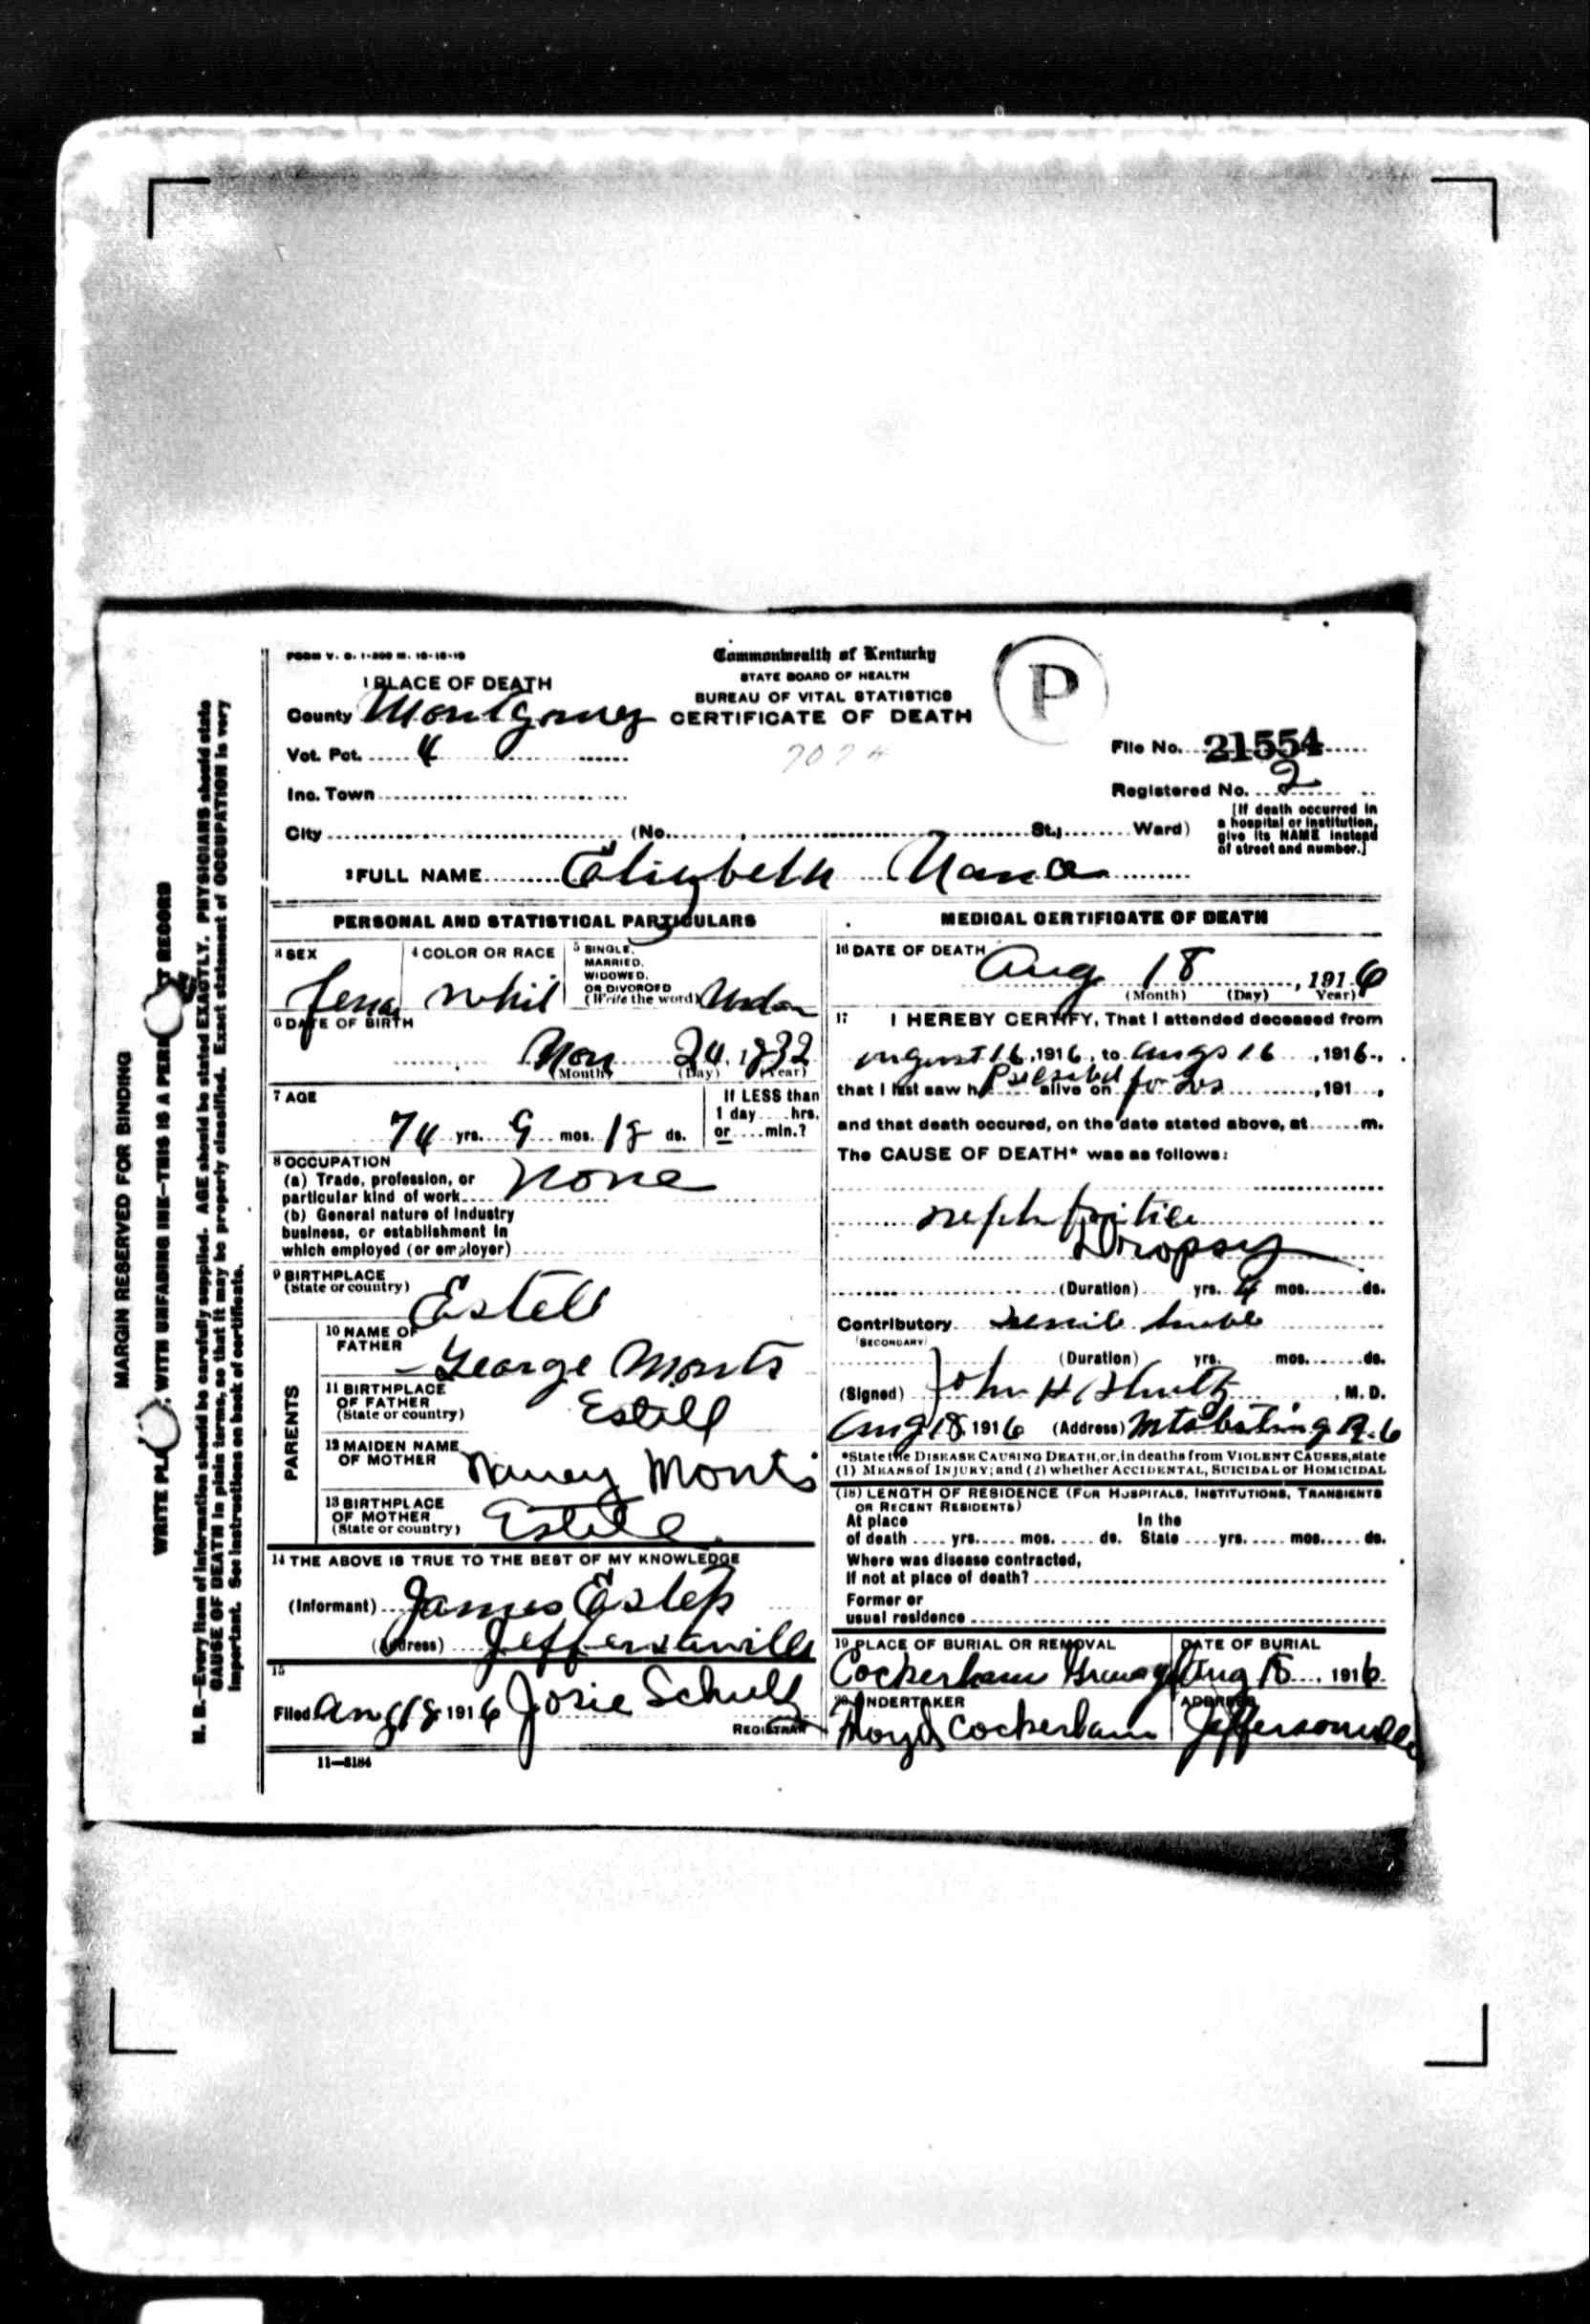 FORM V. S. 1-200 M. 10-10-10
Commonwealth of Kentucky
STATE BOARD OF HEALTH
BUREAU OF VITAL STATISTICS
CERTIFICATE OF DEATH
P
1 PLACE OF DEATH
County Montgomery
Vot. Pct. 4
Inc. Town
City (No. , St.; Ward)
File No. 21554
Registered No. 2
[If death occurred in
a hospital or institution,
give its NAME instead
of street and number.]
2 FULL NAME Elizabeth
PERSONAL AND STATISTICAL PARTICULARS
3 SEX
4 COLOR OR RACE Whit
5 SINGLE,
MARRIED,
WIDOWED,
OR DIVORCED
(Write the word)
6 DATE OF BIRTH
Nov 24, 1832
(Month) (Day) (Year)
7 AGE
74 yrs. 9 mos. 18 ds.
If LESS than
1 day hrs.
or min.?
8 OCCUPATION
(a) Trade, profession, or
particular kind of work none
(b) General nature of industry
business, or establishment in
which employed (or employer)
9 BIRTHPLACE
(State or country) Estell
PARENTS
10 NAME OF
FATHER George Monts
11 BIRTHPLACE
OF FATHER
(State or country) Estill
12 MAIDEN NAME
OF MOTHER Nancy Monts
13 BIRTHPLACE
OF MOTHER
(State or country)
14 THE ABOVE IS TRUE TO THE BEST OF MY KNOWLEDGE
(Informant) James Estep
(Address)
15
Filed Aug 18 1916 Josie Schultz
REGISTRAR
11-3184
MEDICAL CERTIFICATE OF DEATH
16 DATE OF DEATH
Aug 18, 1916
(Month) (Day) Year)
17 I HEREBY CERTIFY, That I attended deceased from
August 16, 1916, to Augs 16, 1916.,
that I last saw h alive on , 191 ,
and that death occured, on the date stated above, at m.
The CAUSE OF DEATH* was as follows:
Dropsy
(Duration) yrs. 4 mos. ds.
Contributory
(SECONDARY)
(Duration) yrs. mos. ds.
(Signed) John H Shultz, M. D.
Aug 18 1916 (Address)
*State the DISEASE CAUSING DEATH, or, in deaths from VIOLENT CAUSES, state
(1) MEANS of INJURY; and (2) whether ACCIDENTAL, SUICIDAL or HOMICIDAL
(18) LENGTH OF RESIDENCE (FOR HOSPITALS, INSTITUTIONS, TRANSIENTS
OR RECENT RESIDENTS)
At place In the
of death yrs. mos. ds. State yrs. mos. ds.
Where was disease contracted,
If not at place of death?
Former or
usual residence
19 PLACE OF BURIAL OR REMOVAL DATE OF BURIAL
Cockerham Aug 18, 1916
20 UNDERTAKER ADDRESS
Floyd Cockerham Jeffersonville
MARGIN RESERVED FOR BINDING
WRITE PLA , WITH UNFADING INK—THIS IS A PERM T RECORD
N. B.—Every item of information should be carefully supplied. AGE should be stated EXACTLY. PHYSICIANS should state
CAUSE OF DEATH in plain terms, so that it may be properly classified. Exact statement of OCCUPATION is very
important. See instructions on back of certificate.